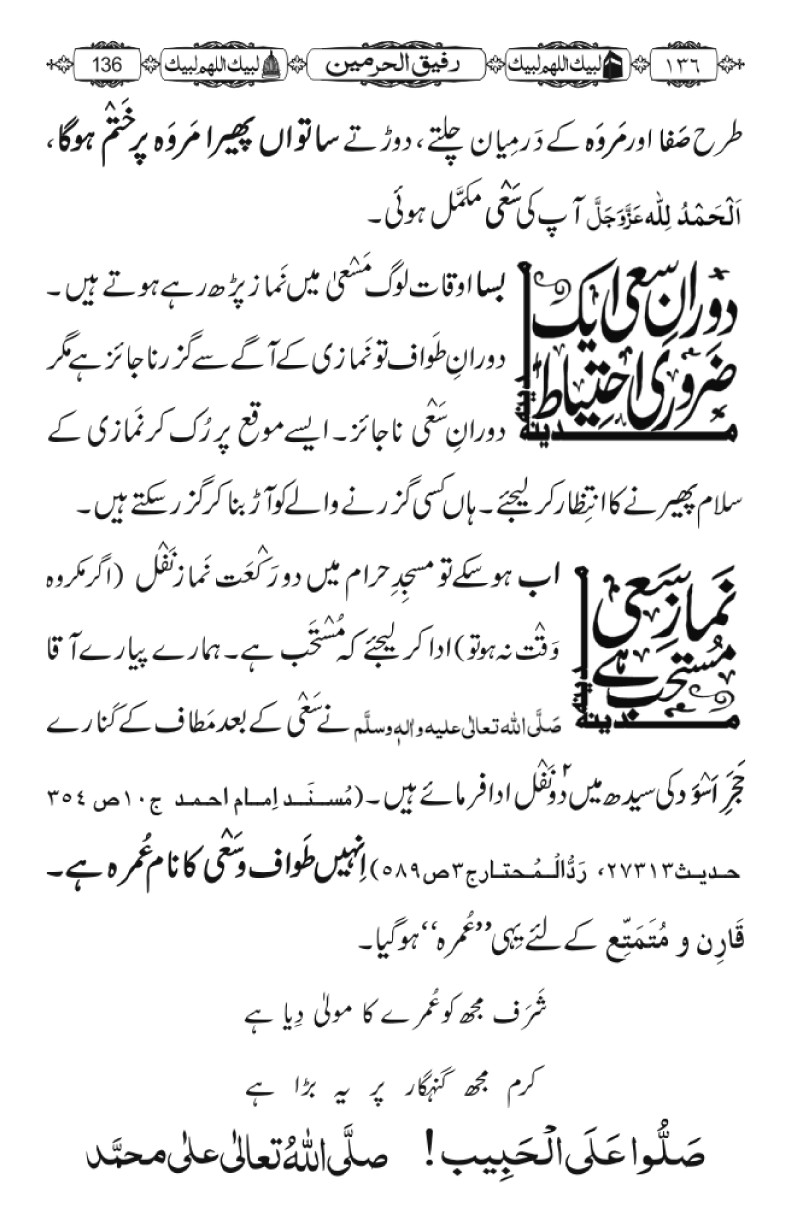 ١٣٦ لبيك اللهم لبيك رفيق الحرمين لبيك اللهم لبيك 136
طرح صَفا اور مَروَہ کے دَرمِیان چلتے، دوڑتے ساتواں پھیرا مَروَہ پر خَتْم ہوگا،
اَلْحَمْدُ لِلّٰه عَزَّوَجَلَّ آپ کی سَعْی مکمَّل ہوئی۔
دَورانِ سعی ایک
ضَروری اِحتِیاط
مدینہ مدینہ
بسا اوقات لوگ مَسْعیٰ میں نَماز پڑھ رہے ہوتے ہیں۔
دورانِ طَواف تو نَمازی کے آگے سے گزرنا جائز ہے مگر
دورانِ سَعْی ناجائز۔ ایسے موقع پر رُک کر نَمازی کے
سلام پھیرنے کا انتِظار کر لیجئے۔ ہاں کسی گزرنے والے کو آڑ بنا کر گزر سکتے ہیں۔
نَمازِ سَعی
مُستَحَب ہے
مدینہ مدینہ
اب ہو سکے تو مسجِدِ حرام میں دو رَکْعَت نَماز نَفْل (اگر مکروہ
وَقْت نہ ہو تو) ادا کر لیجئے کہ مُسْتَحَب ہے۔ ہمارے پیارے آقا
صَلَّى اللہ تعالٰی علیہ واٰلہٖ وسلَّم نے سَعْی کے بعد مَطاف کے کَنارے
حَجَرِ اَسْوَد کی سیدھ میں دو۲ نَفْل ادا فرمائے ہیں۔ (مُسنَد اِمام احمد ج١٠ص ٣٥٤
حدیث٢٧٣١٣، رَدُّالْمُحتار ج٣ص٥٨٩) اِنہیں طَواف و سَعْی کا نام عُمرہ ہے۔
قَارِن و مُتَمَتِّع کے لئے یِہی ’’عُمرہ‘‘ ہو گیا۔
شَرَف مجھ کو عُمرے کا مولیٰ دِیا ہے
کرم مجھ گنہگار پر یہ بڑا ہے
صَلُّوا عَلَى الْحَبِيب! صلَّى اللّٰهُ تعالٰى علٰى محمَّد